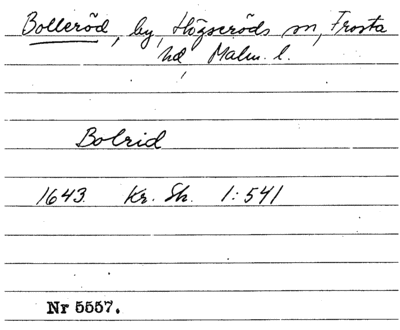 Bolleröd, by, Högseröds sn, Frosta
hd, Malm. l.
Bolrid
1643. Kr. Sk. 1:541
Nr 5557.